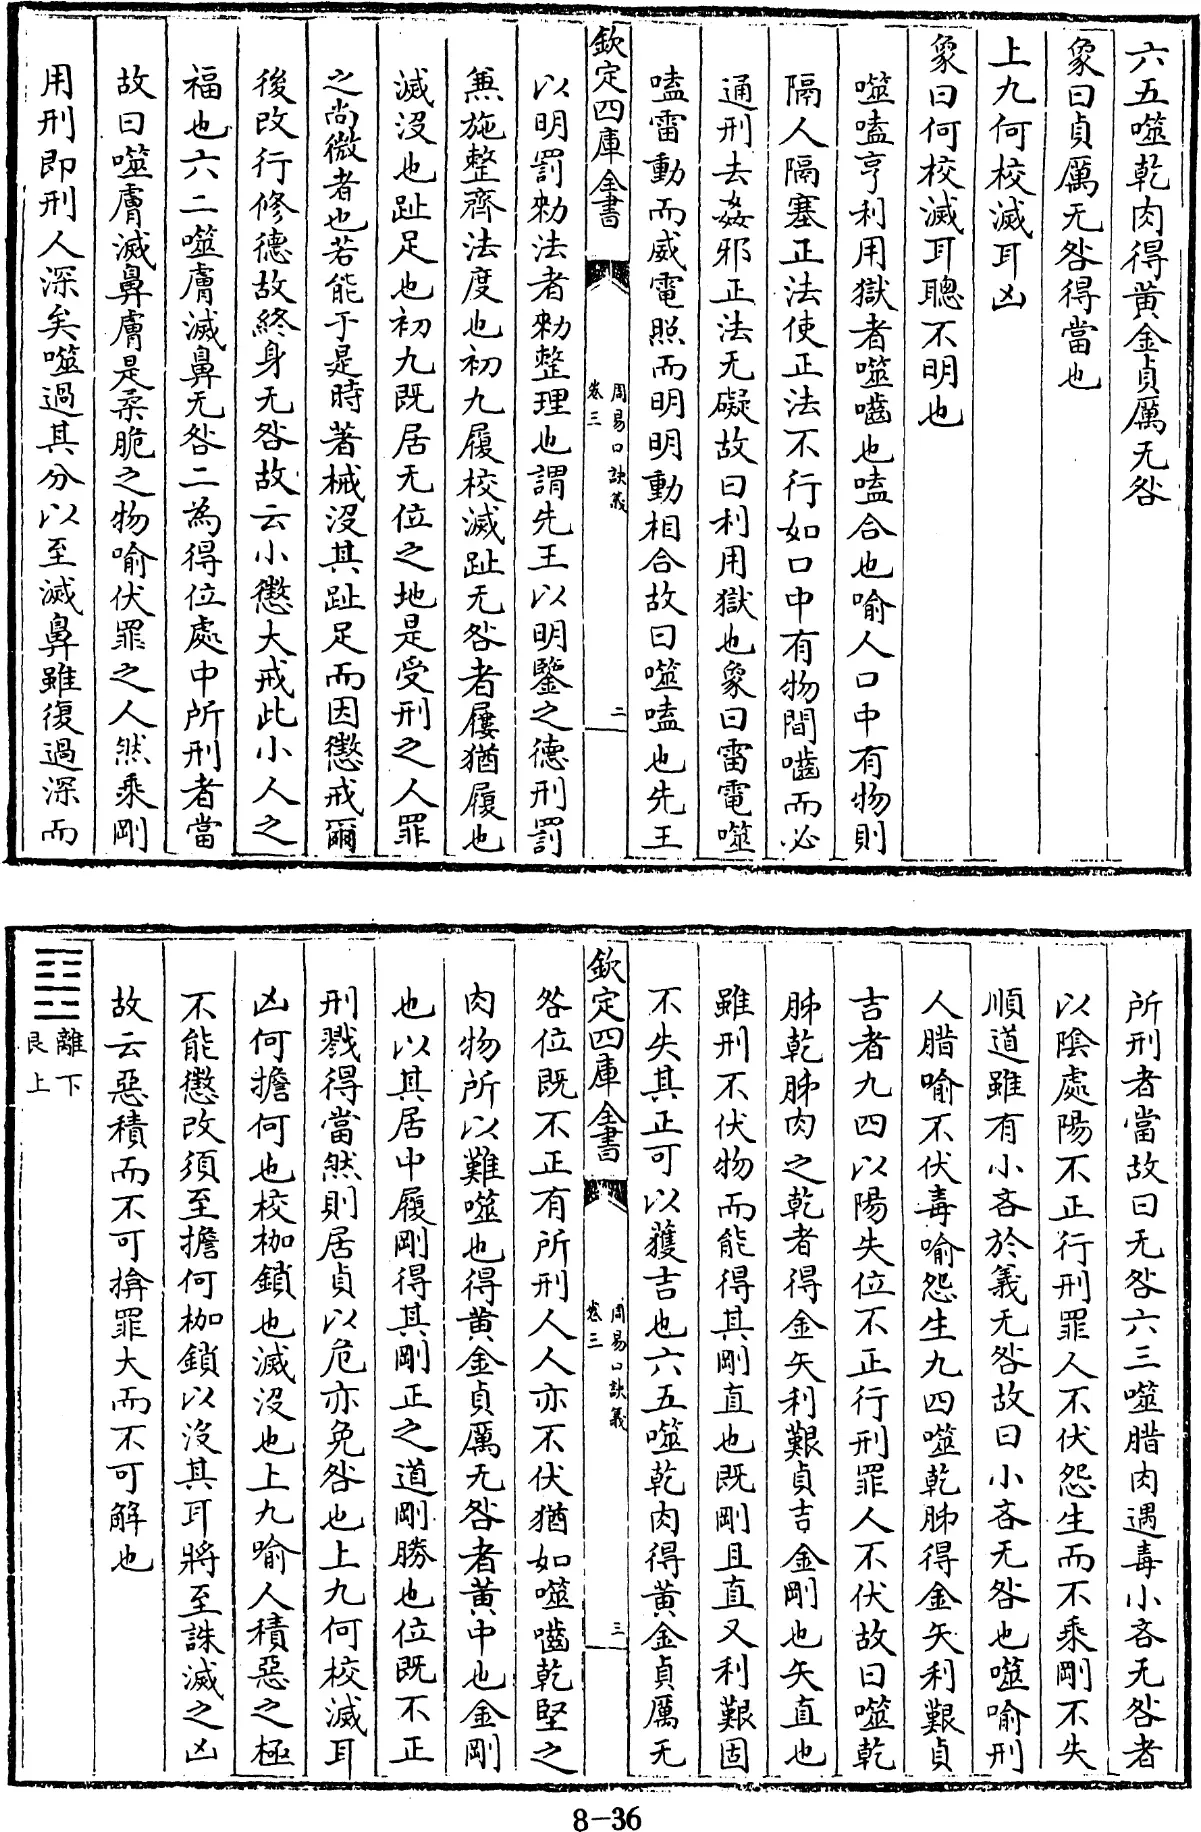 六五噬乾肉得黃金貞厲无咎
象曰貞厲无咎得當也
上九何校滅耳凶
象曰何校滅耳聰不明也
噬嗑亨利用獄者噬嚙也嗑合也喻人口中有物則
隔人隔塞正法使正法不行如口中有物間嚙而必
通刑去姦邪正法无礙故曰利用獄也象曰雷電噬
嗑雷動而威電照而明明動相合故曰噬嗑也先王
欽定四庫全書
周易口訣義
卷三
二
以明罰勑法者勑整理也謂先王以明鑒之德刑罰
兼施整齊法度也初九履校滅趾无咎者屨猶履也
滅沒也趾足也初九既居无位之地是受刑之人罪
之尚微者也若能于是時著械沒其趾足而因懲戒爾
後改行修德故終身无咎故云小懲大戒此小人之
福也六二噬膚滅鼻无咎二為得位處中所刑者當
故曰噬膚滅鼻膚是柔脆之物喻伏罪之人然乘剛
用刑即刑人深矣噬過其分以至滅鼻雖復過深而
所刑者當故曰无咎六三噬腊肉遇毒小吝无咎者
以陰處陽不正行刑罪人不伏怨生而不乘剛不失
順道雖有小吝於義无咎故曰小吝无咎也噬喻刑
人腊喻不伏毒喻怨生九四噬乾胏得金矢利艱貞
吉者九四以陽失位不正行刑罪人不伏故曰噬乾
胏乾胏肉之乾者得金矢利艱貞吉金剛也矢直也
雖刑不伏物而能得其剛直也既剛且直又利艱固
不失其正可以獲吉也六五噬乾肉得黃金貞厲无
欽定四庫全書
周易口訣義
卷三
三
咎位既不正有所刑人人亦不伏猶如噬嚙乾堅之
肉物所以難噬也得黃金貞厲无咎者黃中也金剛
也以其居中履剛得其剛正之道剛勝也位既不正
刑戮得當然則居貞以危亦免咎也上九何校滅耳
凶何擔何也校枷鎖也滅沒也上九喻人積惡之極
不能懲改須至擔何枷鎖以沒其耳將至誅滅之凶
故云惡積而不可揜罪大而不可解也
離下
艮上
8-36